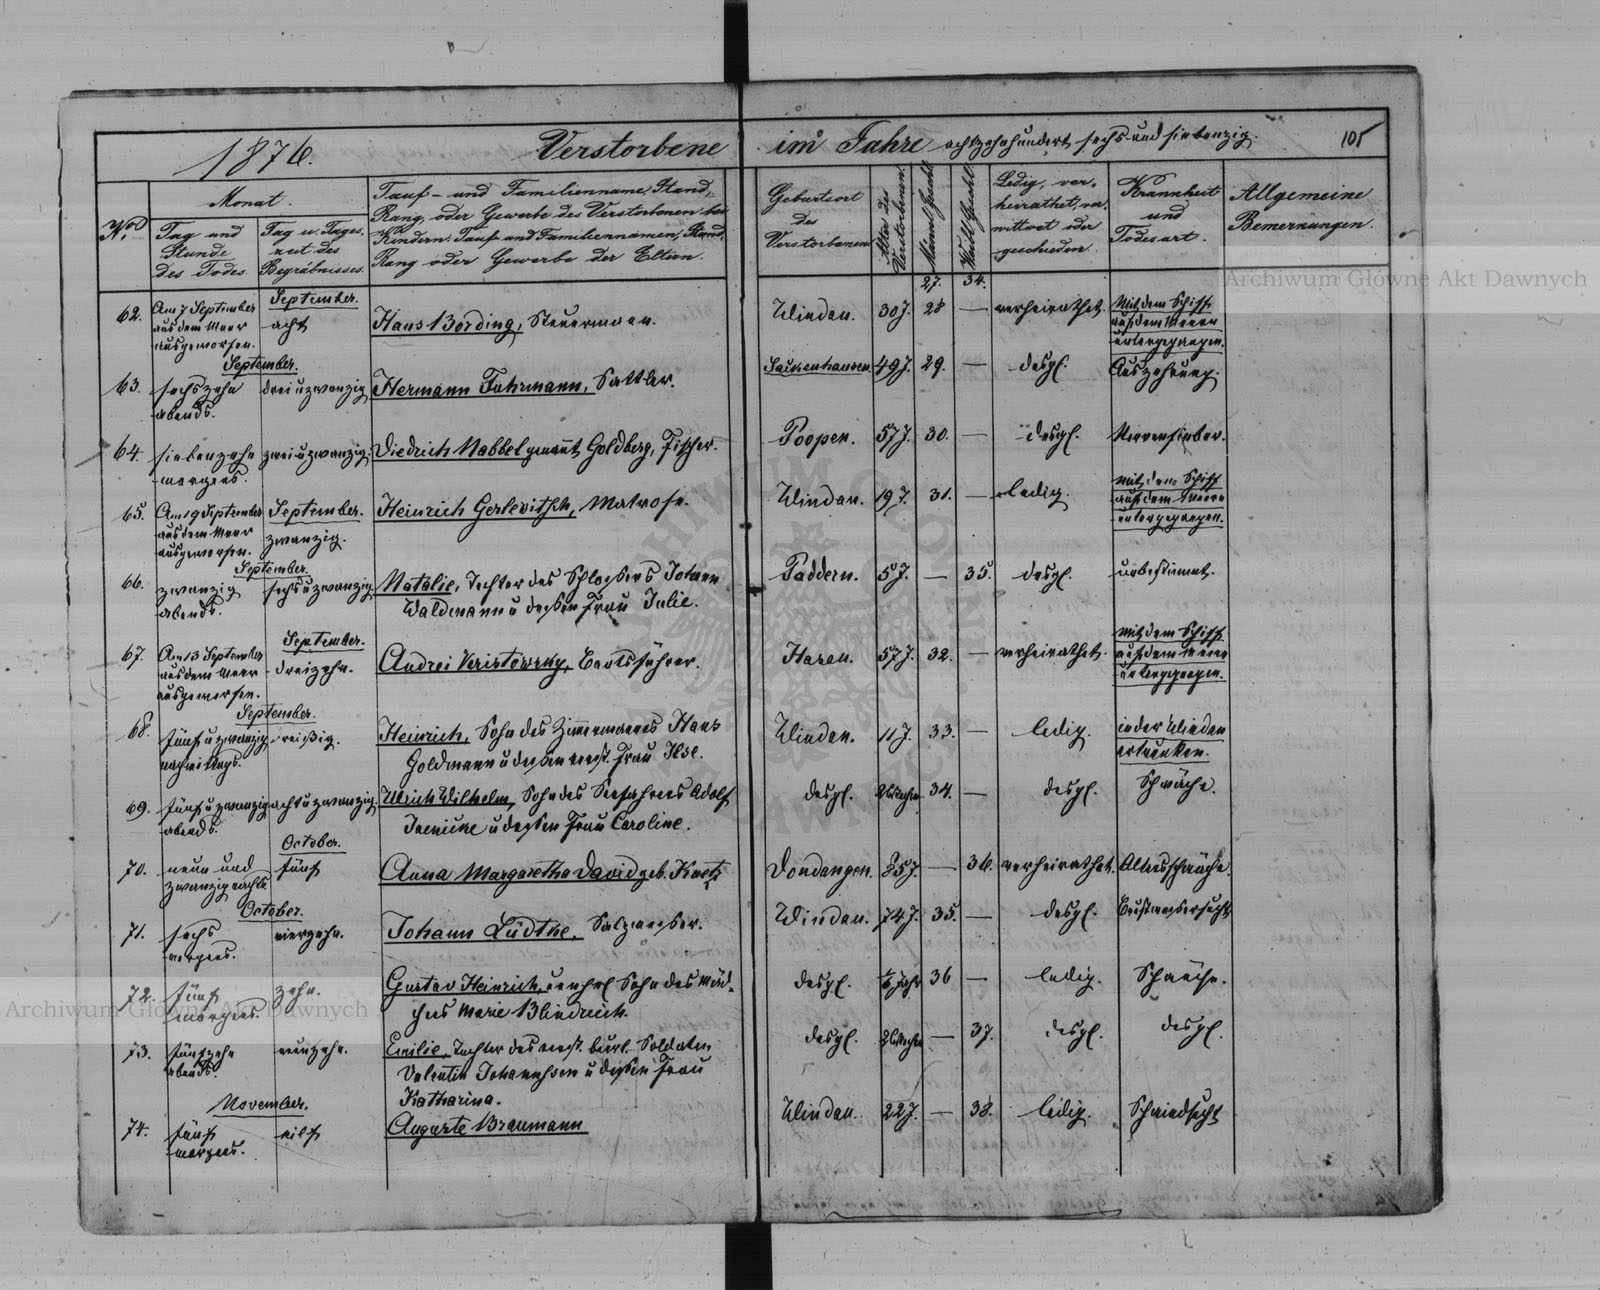 1876.
Verstorbene im Jahre achtzehnhundert sechs und siebenzig.
105
No.
Monat.
Tag und Stunde des Todes.
Tag u. Tageszeit des Begräbnisses.
Tauf- und Familienname, Stand,
Rang oder Gewerbe des Verstorbenen bei
Kindern: Tauf- und Familiennamen, Stand,
Rang oder Gewerbe der Eltern.
Geburtsort
des
Verstorbenen
Alter des Verstorbenen.
Männl. Geschl.
Weibl. Geschl.
Ledig, ver-
heirathet, ver-
wittwet oder
geschieden.
Krankheit
und
Todesart.
Allgemeine
Bemerkungen.
27. 34.
September.
62. Am 7 September acht Hans Bording, Steuermann. Windau. 30 J. 28 — verheirathet. Mit dem Schiff
aus dem Meer auf dem Meere
ausgeworfen. untergegangen.
September.
63. sechszehn drei u zwanzig Hermann Fuhrmann, Sattler. Sackenhausen 49 J. 29. — desgl. Auszehrung.
abends.
64. siebenzehn zwei u zwanzig. Diedrich Nabbel genannt Goldberg, Fischer. Poopen. 57 J. 30. — desgl. Nervenfieber.
morgens.
65. Am 19 September September. Heinrich Gerlevitsch, Matrose. Windau. 19 J. 31. — ledig. Mit dem Schiff
aus dem Meer zwanzig. auf dem Meere
ausgeworfen. untergegangen.
September.
66. zwanzig sechs u zwanzig. Natalie, Tochter des Schlossers Johann Paddern. 5 J. — 35. desgl. unbestimmt.
abends. Waldmann u dessen Frau Julie.
September.
67. Am 13 September dreizehn. Andrei Veristowsky, Bootsführer. Hasen. 57 J. 32. — verheirathet. Mit dem Schiff
aus dem Meer auf dem Meere
ausgeworfen. untergegangen.
September.
68. fünf u zwanzig dreißig. Heinrich, Sohn des Zimmermanns Hans Windau. 11 J. 33. — ledig. in der Windau
nachmittags. Goldmann u dessen verst. Frau Ilse. ertrunken.
69. fünf u zwanzig acht u zwanzig. Ulrich Wilhelm, Sohn des Seefahrers Adolf desgl. 34. — desgl. Schwäche.
abends. Jaenicke u dessen Frau Caroline.
October.
70. neun und fünf Anna Margaretha David geb. Dondangen. 85 J. — 36. verheirathet. Altersschwäche.
zwanzig nachts.
October.
71. sechs vierzehn. Johann Lüdtke, Salzmesser. Windau. 74 J. 35. — desgl. Brustwassersucht
morgens.
72. fünf zehn. Gustav Heinrich, unehel Sohn des Mäd- desgl. 36 — ledig. Schwäche.
morgens. chens Marie Bliedrich.
73. fünfzehn neunzehn. Emilie, Tochter des verst. beurl. Soldaten desgl. — 37. desgl. desgl.
abends. Valentin Johannsen u dessen Frau
Katharina.
November.
74. fünf eilf Auguste Braumann Windau. 22 J. — 38. ledig. Schwindsucht
morgens.
Archiwum Główne Akt Dawnych
Archiwum Główne Akt Dawnych